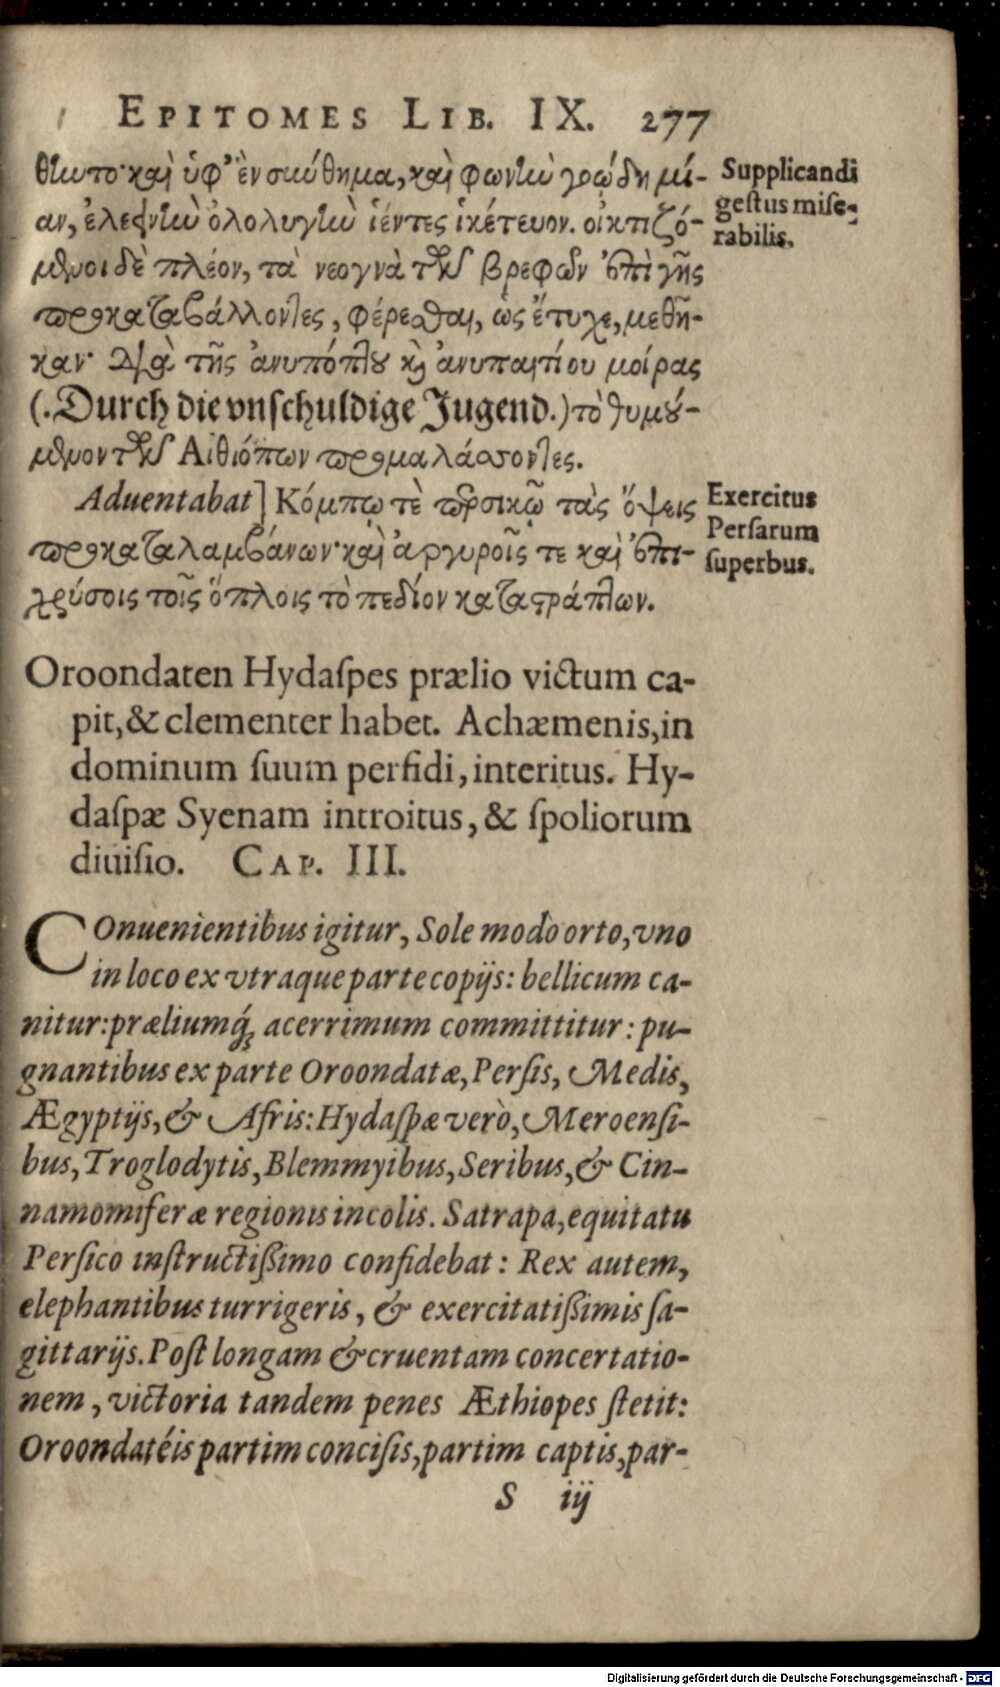 EPITOMES LIB. IX. 277
θέντο· καὶ ὑφ’ ἓν σύνθημα, καὶ φωνὴν γοώδη μί-
αν, ἐλεεινὴν ὀλολυγὴν ἱέντες ἱκέτευον. οἰκτιζό-
μενοι δὲ πλέον, τὰ νεογνὰ τῶν βρεφῶν ἐπὶ γῆς
προκαταβάλλοντες, φέρεσθαι, ὡς ἔτυχε, μεθῆ-
καν· διὰ τῆς ἀνυπόπτου κὶ ἀνυπαιτίου μοίρας
(.Durch die vnschuldige Jugend.) τὸ θυμού-
μενον τῶν Αἰθιόπων προμαλάσσοντες.
Supplicandi
gestus mise-
rabilis.
Aduentabat] Κόμπῳ τὲ περσικῷ τὰς ὄψεις
προκαταλαμβάνων· καὶ ἀργυροῖς τε καὶ ἐπι-
χρύσοις τοῖς ὅπλοις τὸ πεδίον καταστράπτων.
Exercitus
Persarum
superbus.
Oroondaten Hydaſpes prælio victum ca-
pit, & clementer habet. Achæmenis, in
dominum ſuum perfidi, interitus. Hy-
daſpæ Syenam introitus, & ſpoliorum
diuiſio. CAP. III.
COnuenientibus igitur, Sole modò orto, vno
in loco ex vtraque parte copijs: bellicum ca-
nitur: præliumq́; acerrimum committitur: pu-
gnantibus ex parte Oroondatæ, Perſis, Medis,
Ægyptijs, & Afris: Hydaſpæ verò, Meroenſi-
bus, Troglodytis, Blemmyibus, Seribus, & Cin-
namomiferæ regionis incolis. Satrapa, equitatu
Perſico inſtructißimo confidebat: Rex autem,
elephantibus turrigeris, & exercitatißimis ſa-
gittarijs. Poſt longam & cruentam concertatio-
nem, victoria tandem penes Æthiopes ſtetit:
Oroondatéis partim conciſis, partim captis, par-
S iij
Digitalisierung gefördert durch die Deutsche Forschungsgemeinschaft - DFG